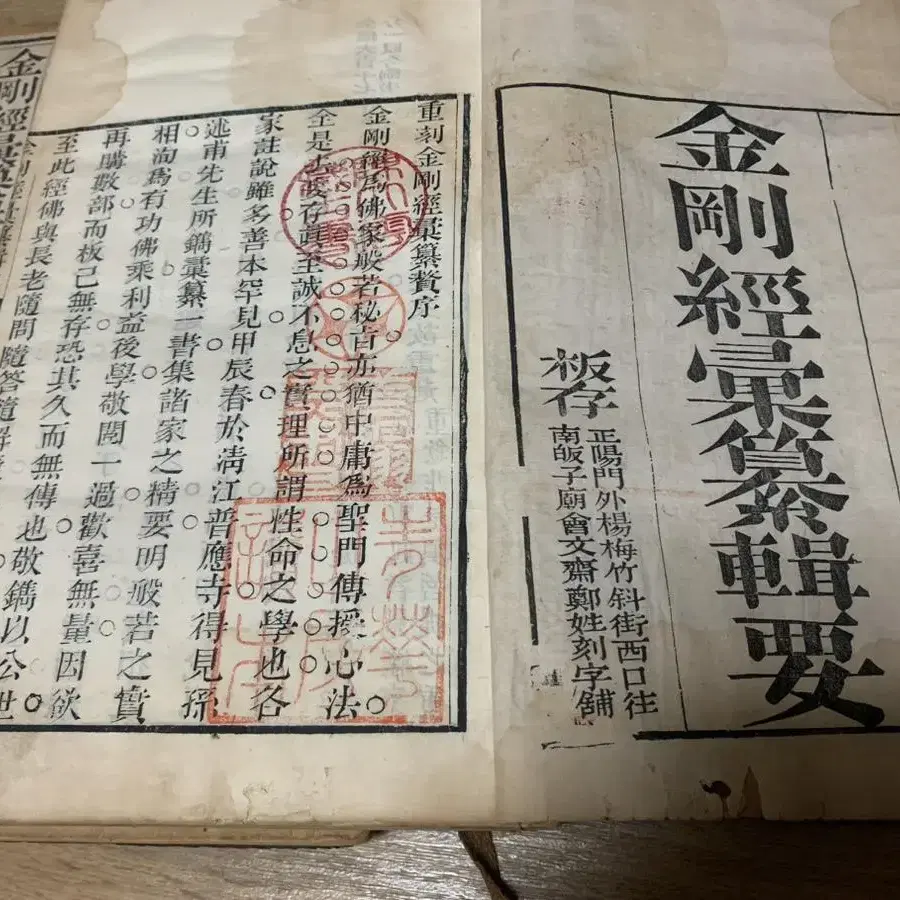 金剛經彚纂輯要
板存
正陽門外楊梅竹斜街西口往
南皈子廟會文齋鄭姓刻字舖
重刻金剛經彚纂贅序
金剛經爲佛家般若秘旨亦猶中庸爲聖門傳授心法
全是去妄存眞至誠不息之實理所謂性命之學也各
家註說雖多善本罕見甲辰春於淸江普應寺得見孫
述甫先生所鐫彚纂一書集諸家之精要明般若之實
相洵爲有功佛乘利益後學敬閱一過歡喜無量因欲
再購數部而板已無存恐其久而無傳也敬鐫以公世
至此經佛與長老隨問隨答隨解
金剛經彚纂